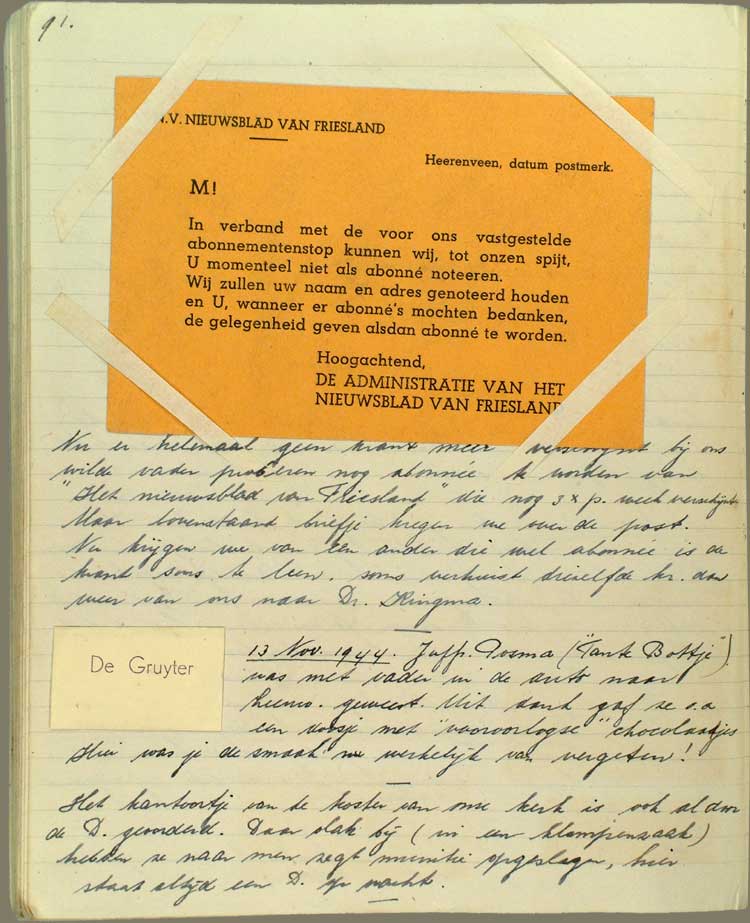 91.
N.V. NIEUWSBLAD VAN FRIESLAND
Heerenveen, datum postmerk.
M!
In verband met de voor ons vastgestelde
abonnementenstop kunnen wij, tot onzen spijt,
U momenteel niet als abonné noteeren.
Wij zullen uw naam en adres genoteerd houden
en U, wanneer er abonné's mochten bedanken,
de gelegenheid geven alsdan abonné te worden.
Hoogachtend,
DE ADMINISTRATIE VAN HET
NIEUWSBLAD VAN FRIESLAND
Nu er helemaal geen krant meer verschijnt bij ons
wilde vader proberen nog abonnée te worden van
"Het nieuwsblad van Friesland" die nog 3 x p. week verschijnt.
Maar bovenstaand briefje kregen we over de post.
Nu krijgen we van een ander die wel abonnée is de
krant soms te leen. soms verhuist diezelfde kr. dan
weer van ons naar Dr. Kingma.
De Gruyter
13 Nov. 1944. Juffr. Posma ("Tante Bottje")
was met vader in de auto naar
geweest. Uit dank gaf ze o.a
een doosje met "vooroorlogse" chocolaadjes
Hier was je de smaak nu werkelijk van vergeten!
Het kantoortje van de koster van onze kerk is ook al door
de D. gevorderd. Daar vlak bij (in een klompenzaak)
hebben ze naar men zegt munitie opgeslagen, hier
staat altijd een D. op wacht.